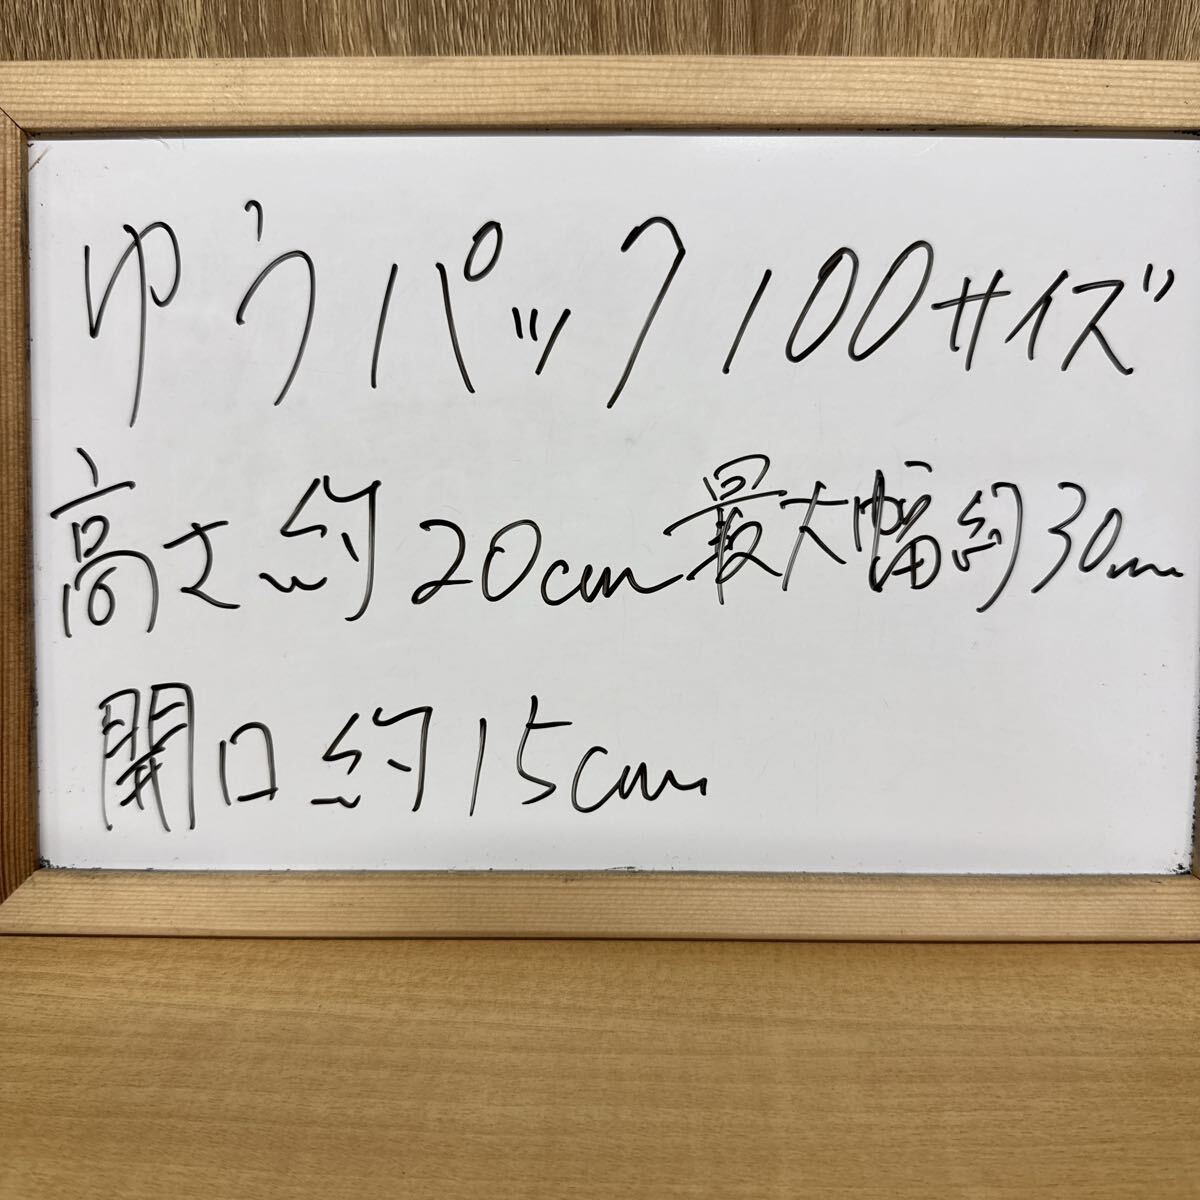 ゆうパック100サイズ
高さ約20cm最大幅約30cm
開口約15cm